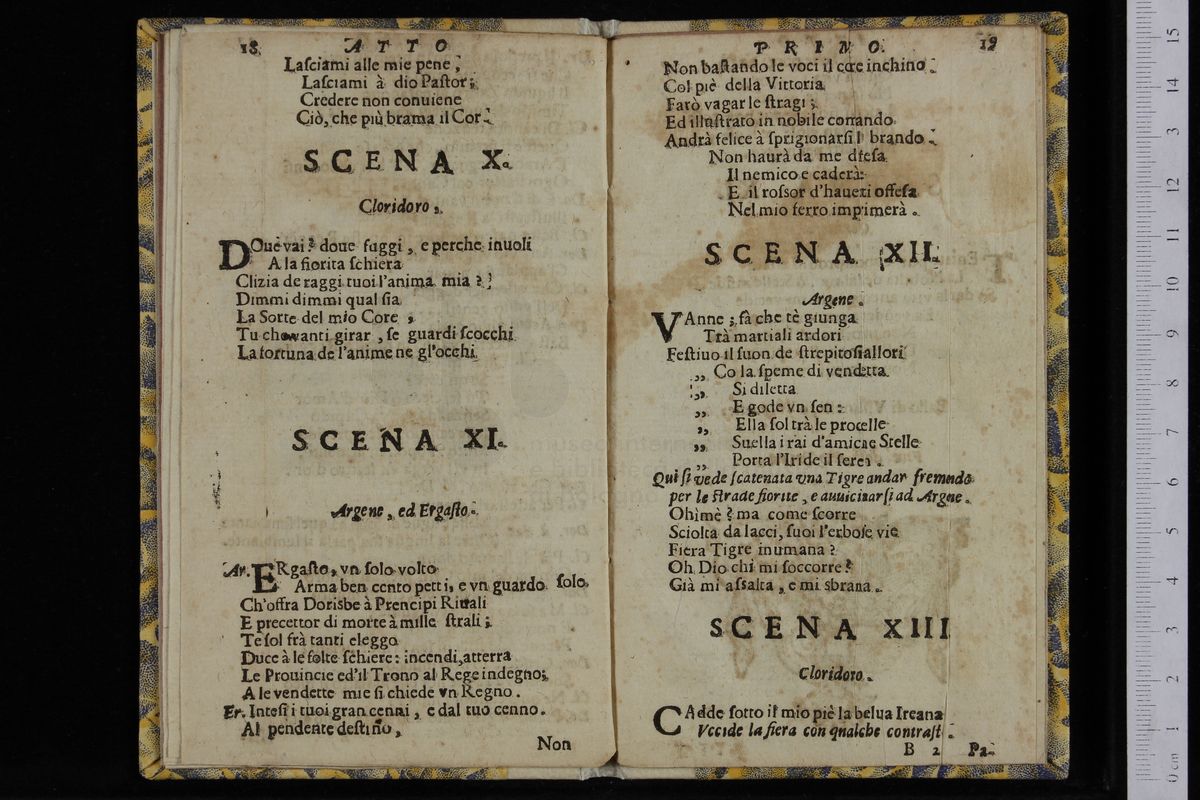 18 ATTO
Lasciami alle mie pene,
Lasciami à dio Pastor;
Credere non conuiene
Ciò, che più brama il Cor.
SCENA X.
Cloridoro.
DOuè vai? doue fuggi, e perche inuoli
A la fiorita schiera
Clizia de raggi tuoi l'anima mia?
Dimmi dimmi qual sia
La Sorte del mio Core,
Tu che vanti girar, se guardi scocchi
La fortuna de l'anime ne gl'occhi.
SCENA XI.
Argene, ed Ergasto.
Ar. ERgasto, vn solo volto
Arma ben cento petti, e vn guardo solo
Ch'offra Dorisbe à Prencipi Riuali
E precettor di morte à mille strali;
Te sol frà tanti eleggo
Duce à le folte schiere: incendi, atterra
Le Prouincie ed'il Trono al Rege indegno;
A le vendette mie si chiede vn Regno.
Er. Intesi i tuoi gran cenni, e dal tuo cenno.
Al pendente destino,
Non
PRIMO. 19
Non bastando le voci il core inchino.
Col piè della Vittoria
Farò vagar le stragi;
Ed illustrato in nobile comando
Andrà felice à sprigionarsi l' brando.
Non haurà da me difesa
Il nemico e caderà:
E il rossor d'hauerti offesa
Nel mio ferro imprimerà.
SCENA XII.
Argene.
VAnne; fà che tè giunga
Trà martiali ardori
Festiuo il suon de strepitosi allori
„ Co la speme di vendetta
„ Si diletta
„ E gode vn sen:
„ Ella sol trà le procelle
„ Suella i rai d'amiche Stelle
„ Porta l'Iride il seren.
Qui si vede scatenata vna Tigre andar fremendo
per le strade fiorite, e auuicinarsi ad Argene.
Ohimè? ma come scorre
Sciolta da lacci, suoi l'erbose vie
Fiera Tigre inumana?
Oh Dio chi mi soccorre?
Già mi assalta, e mi sbrana.
SCENA XIII
Cloridoro.
CAdde sotto il mio piè la belua Ircana
Vccide la fiera con qualche contrast.
B 2 Pa-